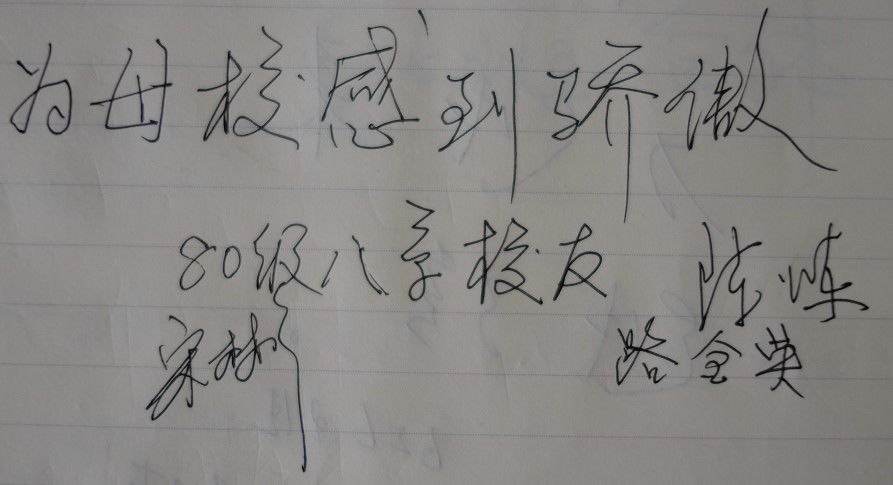 为母校感到骄傲
80级八系校友 陈炼
宋彬 路金英